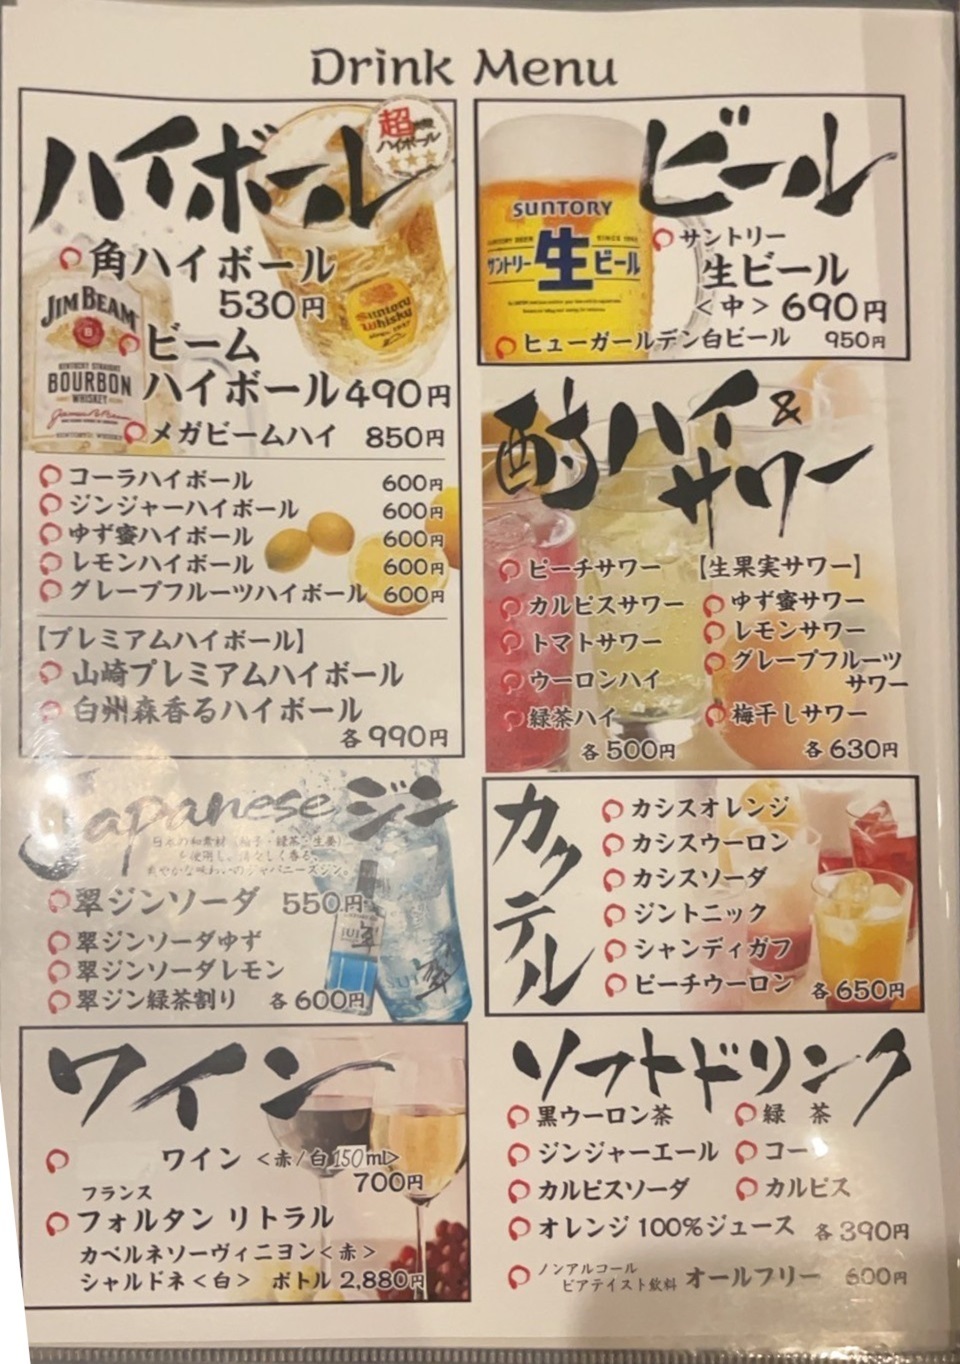 Drink Menu
ハイボール
超
ハイボール
角ハイボール
530円
ビーム
ハイボール 490円
メガビームハイ 850円
JIM BEAM
B
KENTUCKY STRAIGHT
BOURBON
WHISKEY
Suntory
Whisky
コーラハイボール 600円
ジンジャーハイボール 600円
ゆず蜜ハイボール 600円
レモンハイボール 600円
グレープフルーツハイボール 600円
【プレミアムハイボール】
山崎プレミアムハイボール
白州森香るハイボール
各990円
Japanese ジン
日本の和素材(柚子・緑茶・生姜)
を使用し、清々しく香る、
爽やかな味わいのジャパニーズジン。
翠ジンソーダ 550円
翠ジンソーダゆず
翠ジンソーダレモン
翠ジン緑茶割り 各600円
翠
ワイン
ワイン <赤/白 150ml>
700円
フランス
フォルタン リトラル
カベルネソーヴィニヨン<赤>
シャルドネ<白> ボトル 2,880円
ビール
SUNTORY
サントリー 生 ビール
サントリー
生ビール
<中> 690円
ヒューガールデン白ビール 950円
酎ハイ&
サワー
ピーチサワー
カルピスサワー
トマトサワー
ウーロンハイ
緑茶ハイ
各500円
【生果実サワー】
ゆず蜜サワー
レモンサワー
グレープフルーツ
サワー
梅干しサワー
各630円
カクテル
カシスオレンジ
カシスウーロン
カシスソーダ
ジントニック
シャンディガフ
ピーチウーロン
各650円
ソフトドリンク
黒ウーロン茶
緑 茶
ジンジャーエール
コー
カルピスソーダ
カルピス
オレンジ100%ジュース 各390円
ノンアルコール
ビアテイスト飲料 オールフリー 600円